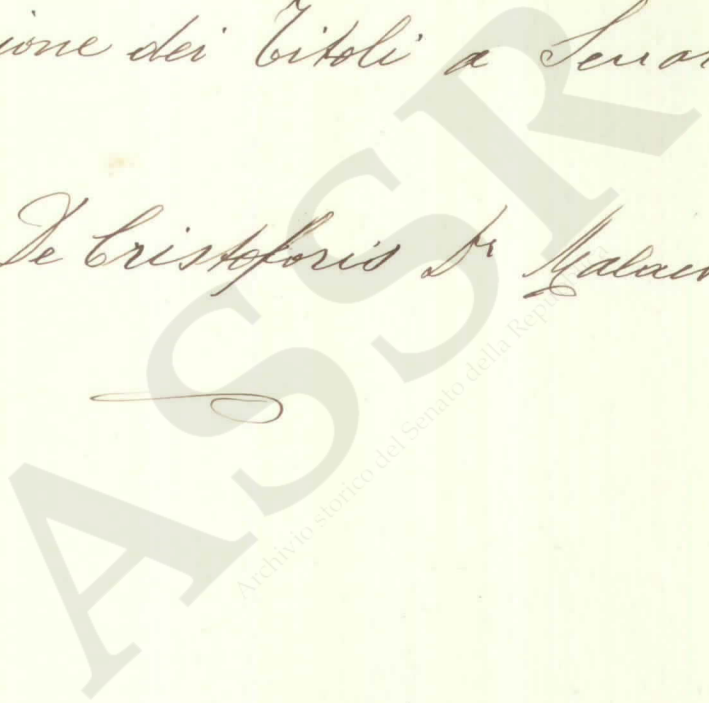 ione dei Titoli a Sena
De Cristoforis Dr Malac
ASSR
Archivio storico del Senato della Repu